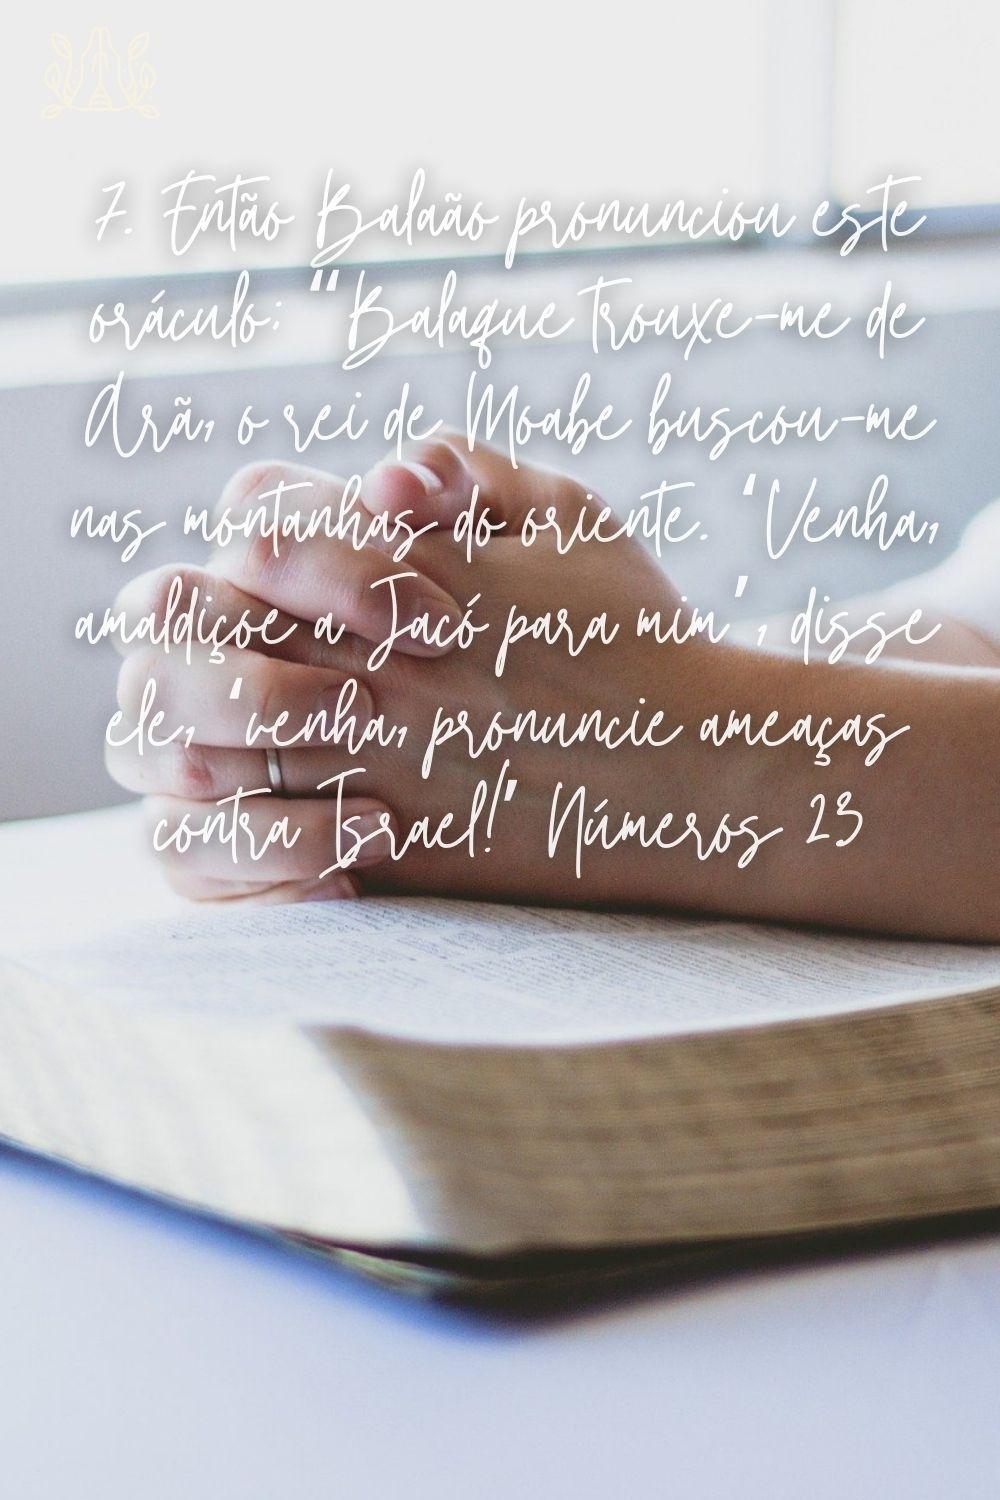 7. Então Balaão pronunciou este
oráculo: “Balaque trouxe-me de
Arã, o rei de Moabe buscou-me
nas montanhas do oriente. ‘Venha,
amaldiçoe a Jacó para mim’, disse
ele, ‘venha, pronuncie ameaças
contra Israel!’ Números 23